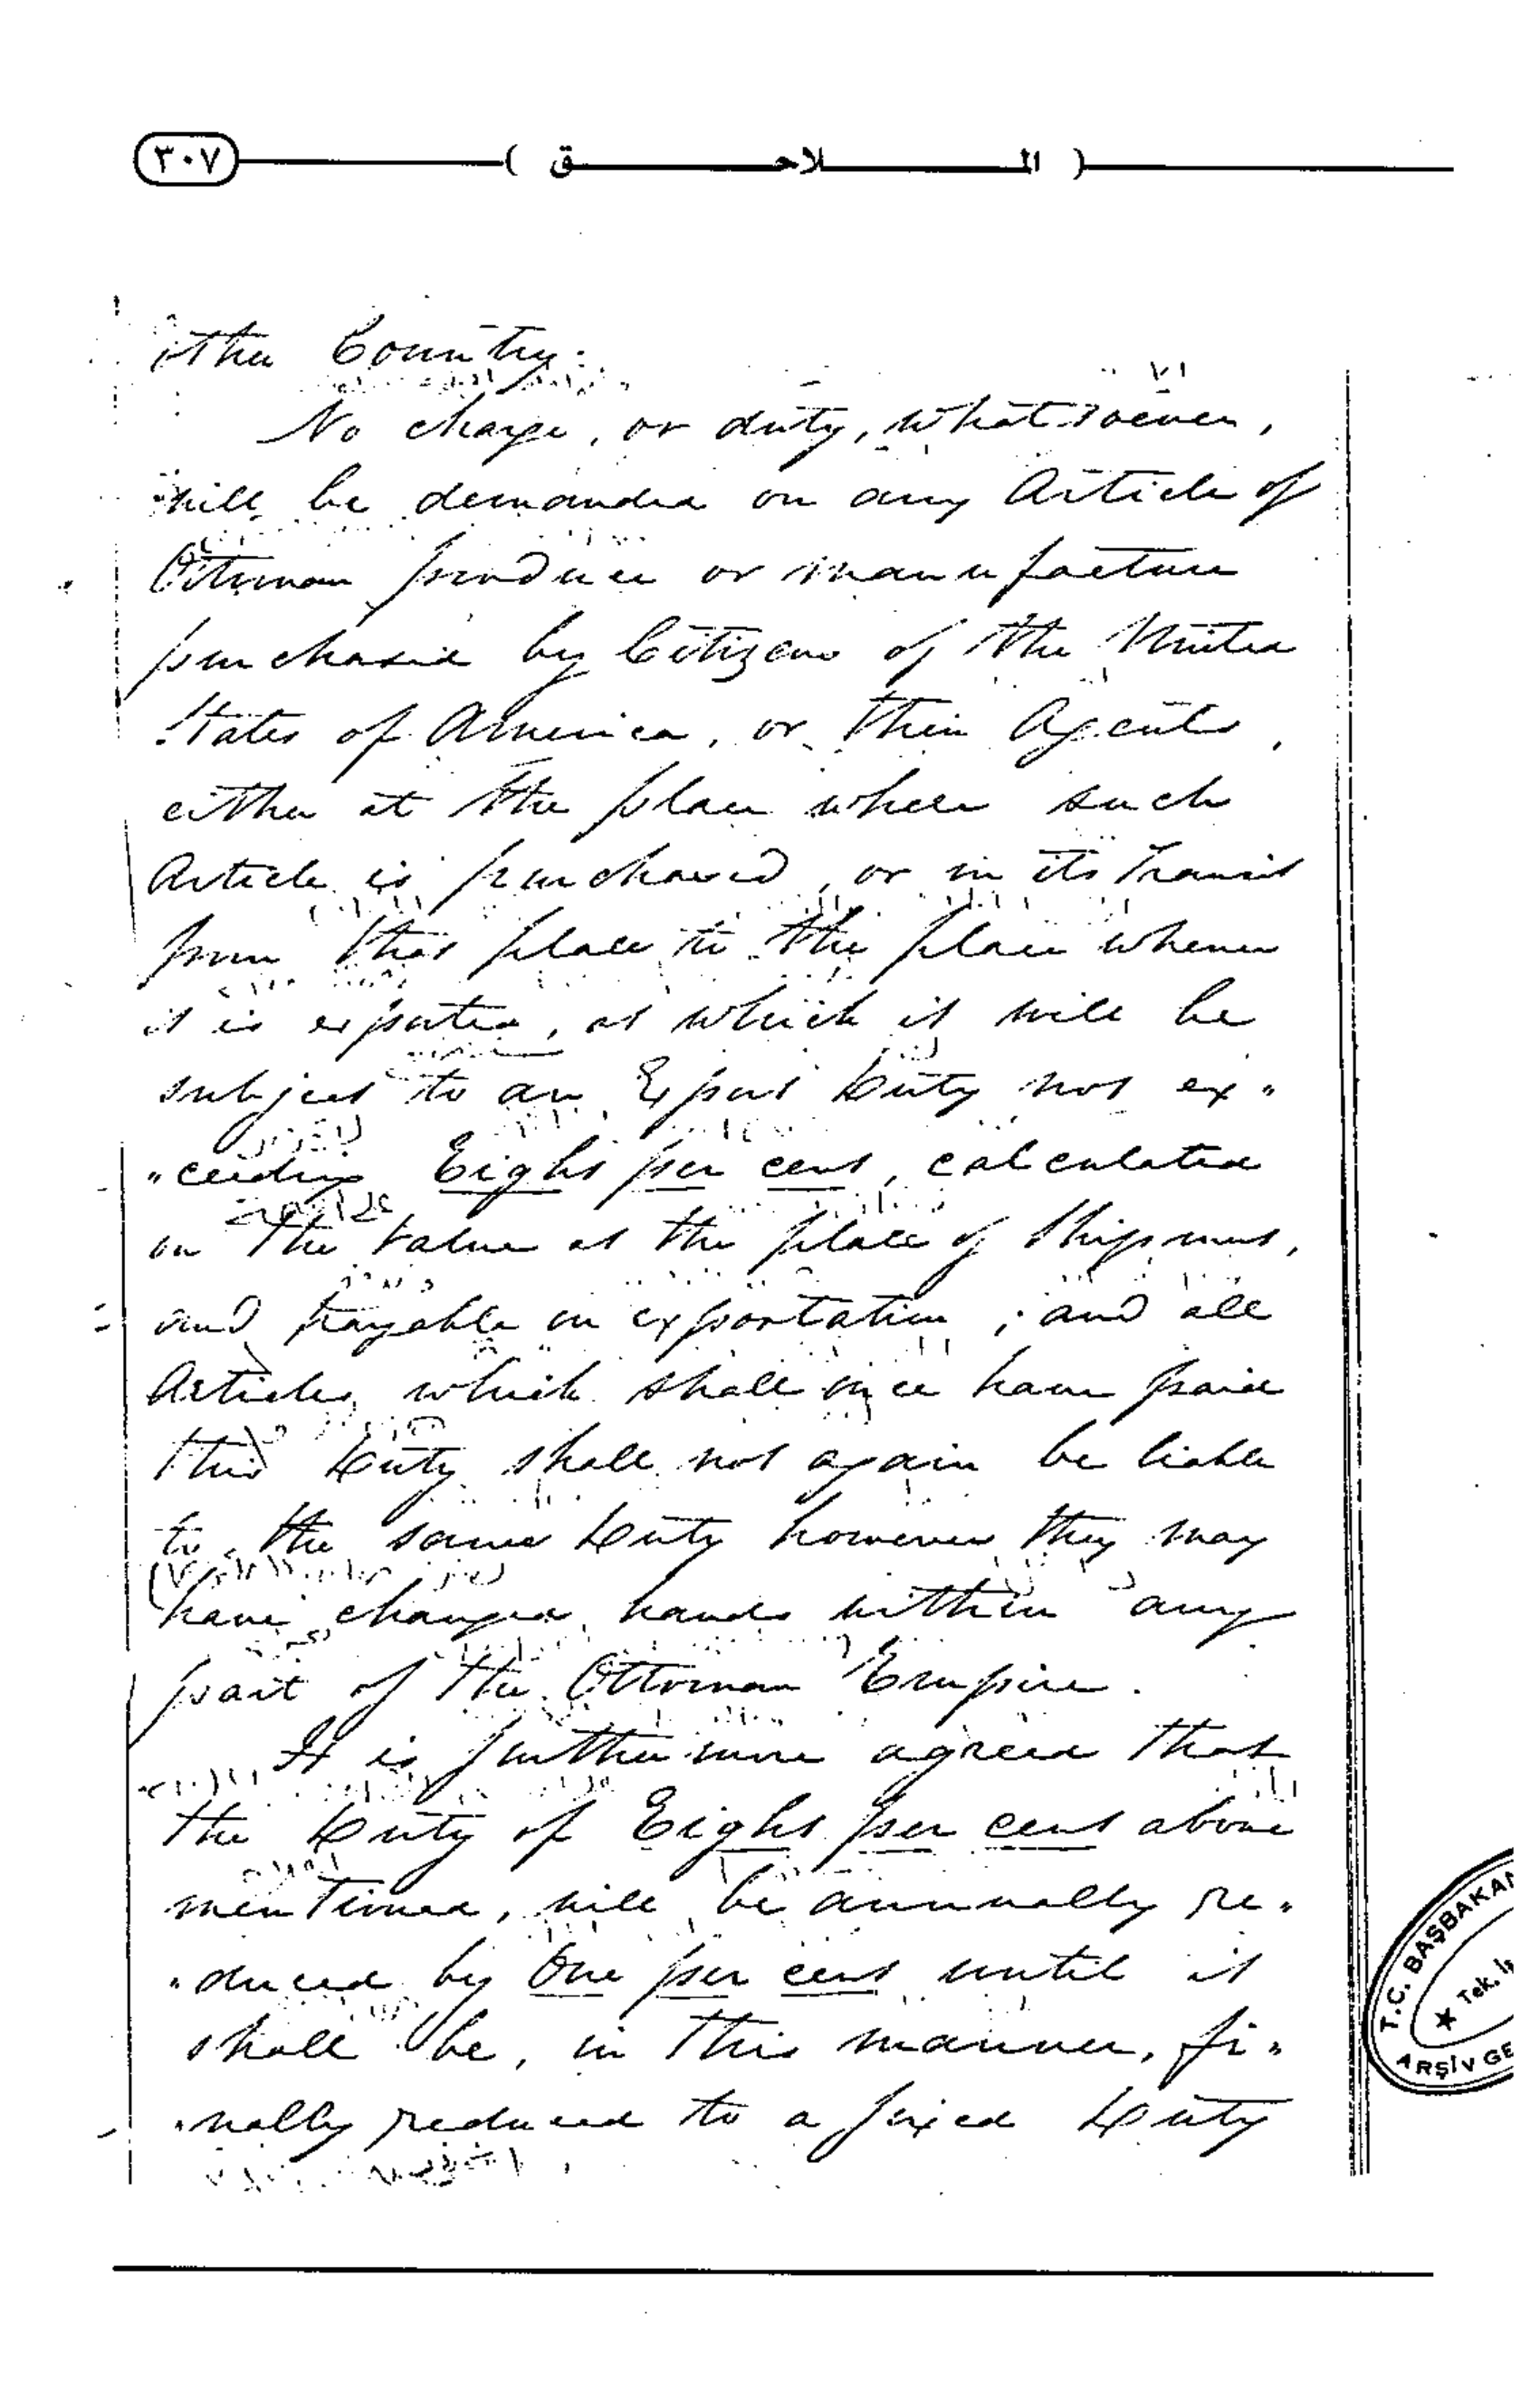 ٣٠٧ ( الملاحق )
other Country.
No charge, or duty, whatsoever,
will be demanded on any Article of
Ottoman produce or manufacture
purchased by Citizens of the United
States of America, or their Agents,
either at the place where such
Article is purchased, or in its Transit
from that place to the place whence
it is exported, at which it will be
subject to an Export Duty not ex„
„ceeding Eight per cent, calculated
on the Value at the place of Shipment,
and payable on exportation ; and all
Articles, which shall once have paid
this Duty shall not again be liable
to the same Duty however they may
have changed hands within any
part of the Ottoman Empire.
It is furthermore agreed that
the Duty of Eight per cent above
mentioned, will be annually re„
„duced by One per cent until it
shall be, in this manner, fi„
„nally reduced to a fixed Duty
T.C. BAŞBAKAN
★ Tek.
ARŞİV GE